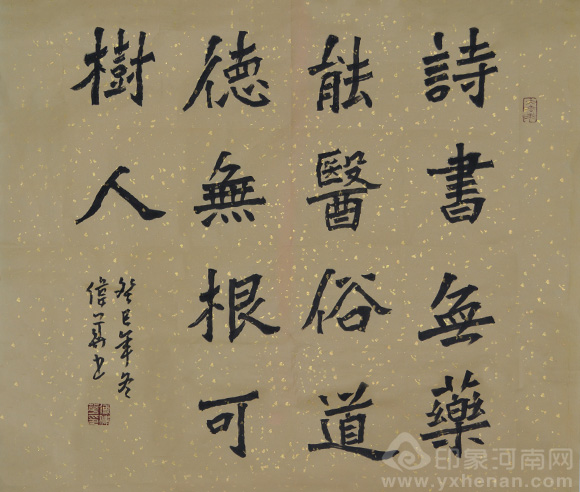 詩書無藥
能醫俗道
德無根可
樹人
癸巳年冬
偉業書
印象河南网
www.yxhenan.com